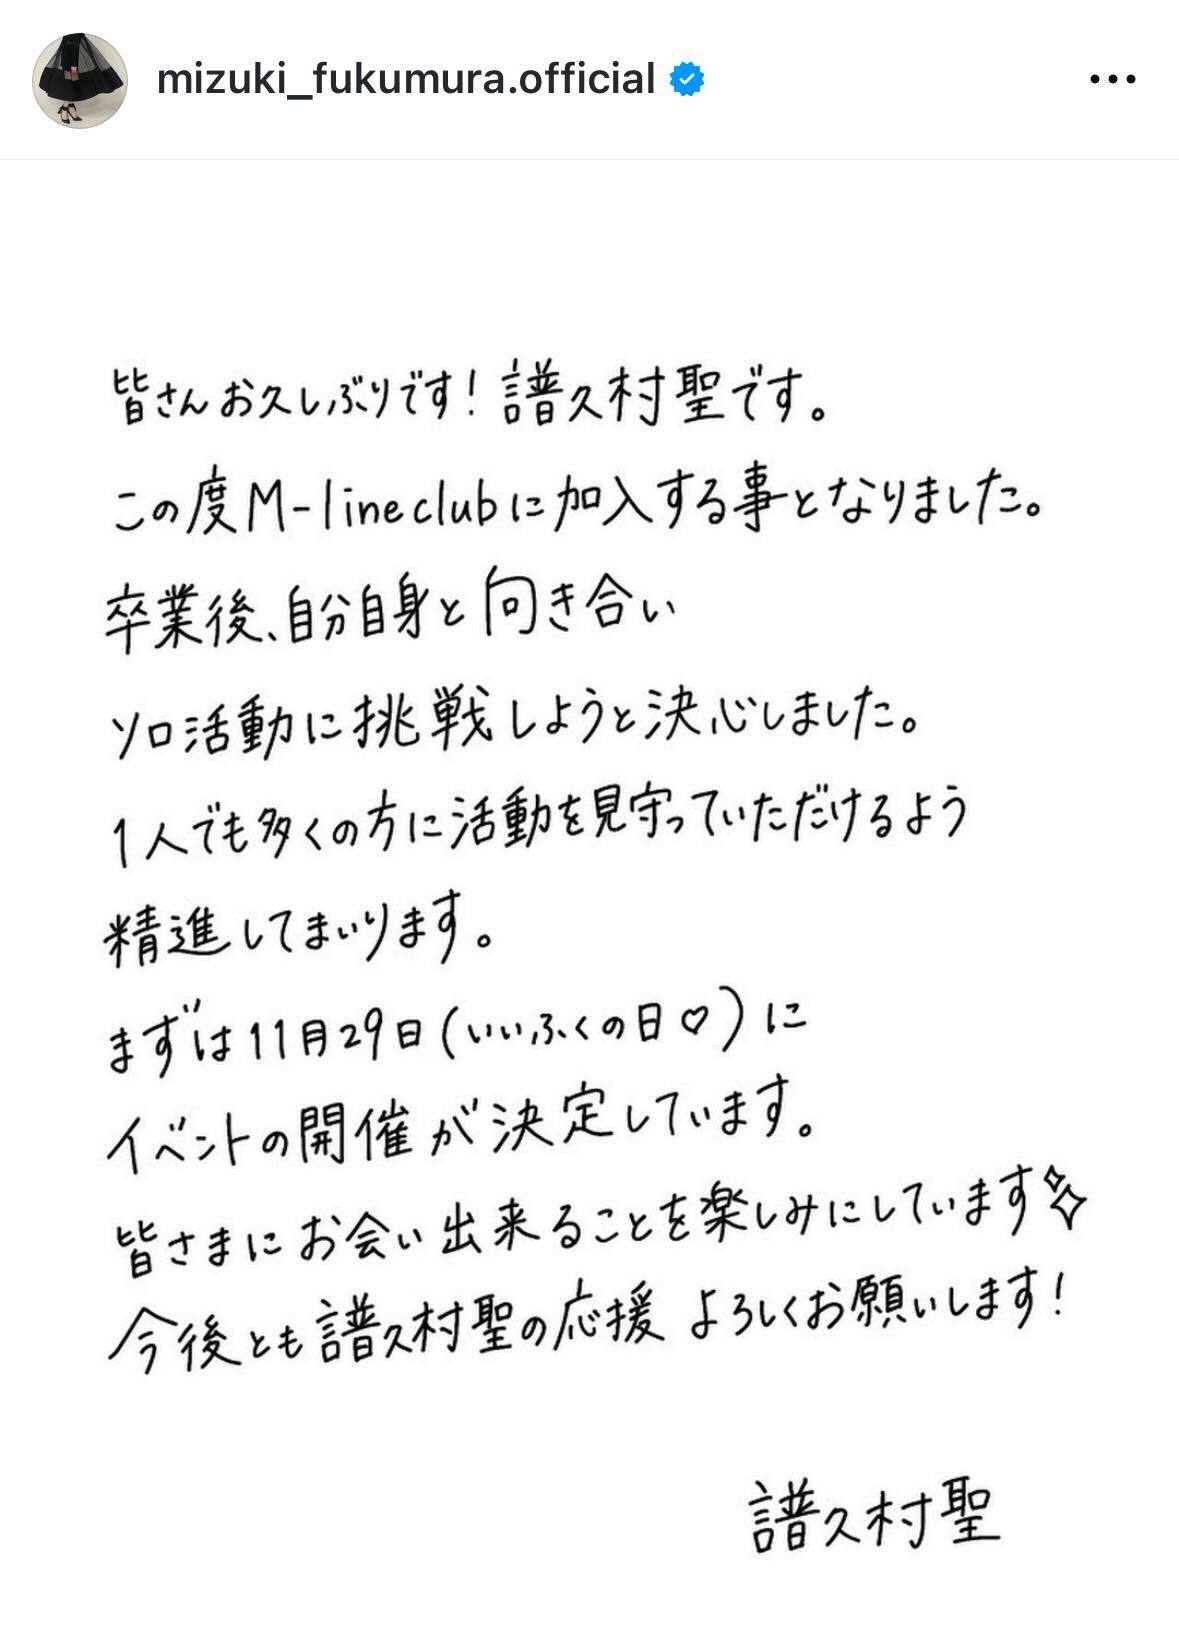 mizuki_fukumura.official
皆さんお久しぶりです！譜久村聖です。
この度M-line clubに加入する事となりました。
卒業後、自分自身と向き合い
ソロ活動に挑戦しようと決心しました。
1人でも多くの方に活動を見守っていただけるよう
精進してまいります。
まずは11月29日(いいふくの日♡)に
イベントの開催が決定しています。
皆さまにお会い出来ることを楽しみにしています✨
今後とも譜久村聖の応援 よろしくお願いします！
譜久村聖